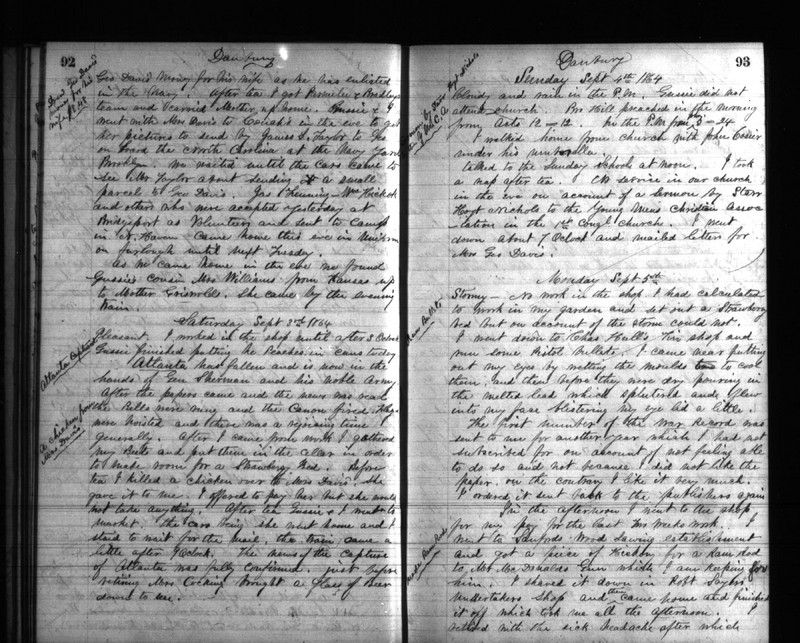 92
Danbury
Geo Davis money for his wife as he has enlisted
in the Navy. After tea I got Bramelee & Bradleys
team and carried Mother up home. Gussie & I
went with Mrs Davis to in the eve to get
her pictures to send by James S. Taylor to Geo
on board the North Carolina at the Navy Yard
Brooklyn. We waited until the Cars came to
see Mr Taylor about sending a small
parcel to Geo Davis. Jas Fleming Wm
and others who were accepted yesterday at
Bridgeport as Volunteers and sent to Camp
in N. Haven came home this eve in Uniform
on furlough until next Tuesday.
As we came home in the eve we found
Gussie's cousin Mrs Williams from Kansas up
to Mother Griswolds. She came by the evening
train.
Saturday Sept 3rd 1864
Pleasant. I worked in the shop until after 3 Oclock
Gussie finished putting the Peaches in cans today
Atlanta has fallen and is now in the
hands of Gen Sherman and his noble Army
After the papers came and the news was read
the Bells were rung and the Canon fired. Flags
were hoisted and there was a rejoicing time
generally. After I came from work I gathered
my Beets and put them in the cellar in order
to make room for a Strawberry Bed. Before
tea I killed a chicken over to Mrs Davis. She
gave it to me. I offered to pay her but she would
not take anything. After tea Gussie & I went to
market. The Cars being she went home and I
staid to wait for the mail, the train came a
little after 9 Oclock. The news of the Capture
of Atlanta was fully confirmed. Just before
retiring Mrs Cocking brought a Glass of Beer
down to me.
Atlanta Captured
A chicken from
Mrs Davis
93
Danbury
Sunday Sept 4th 1864
Cloudy and rain in the P.M. Gussie did not
attend church. Bro Hill preached in the morning
from Acts 12 - 12. In the P.M. from 5 - 24
I walked home from church with John Cosier
under his umbrella.
Talked to the Sunday School at noon. I took
a nap after tea. No service in our church
in the eve on account of a sermon by Starr
Hoyt Nichols to the Young Mens Christian Assoc
-iation in the 1st Congl church. I went
down about 7 Oclock and mailed letters for
Mrs Geo Davis.
Monday Sept 5th
Stormy - No work in the shop. I had calculated
to work in my garden and set out a Strawberry
Bed but on account of the storm could not.
I went down to Chas Hull's Tin shop and
run some Pistol Bullets. I came near putting
out my eyes by wetting the moulds to cool
them, and then before they were dry pouring in
the melted lead which spluterd and flew
into my face blistering my eye lid a little.
The first number of the War Record was
sent to me for another year which I had not
subscribed for on account of not feeling able
to do so and not because I did not like the
paper. on the contrary I like it very much.
I ordered it sent back to the publishers again
In the afternoon I went to the shop
for my pay for the last two weeks work. I
went to Sanfords Wood sawing establishment
and got a piece of Hickory for a Ram Rod
to Mr McDonalds Gun which I am keeping for
him. I shaved it down in Robt Saylors
Undertakers shop and then came home and finished
it off which took me all the afternoon. I
retired with the sick headache after which
Run Bullets